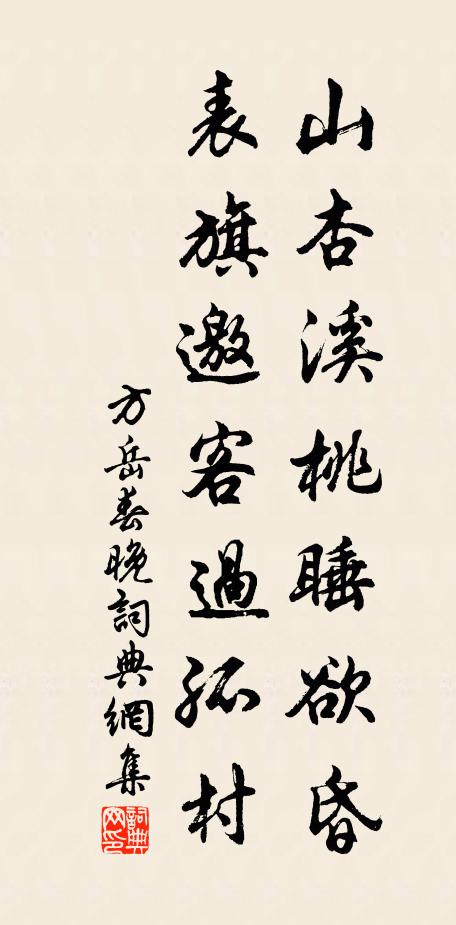 山杏溪桃睡欲昏
表旗邀客過孤村
方岳春晚詞典網集
詞典网印